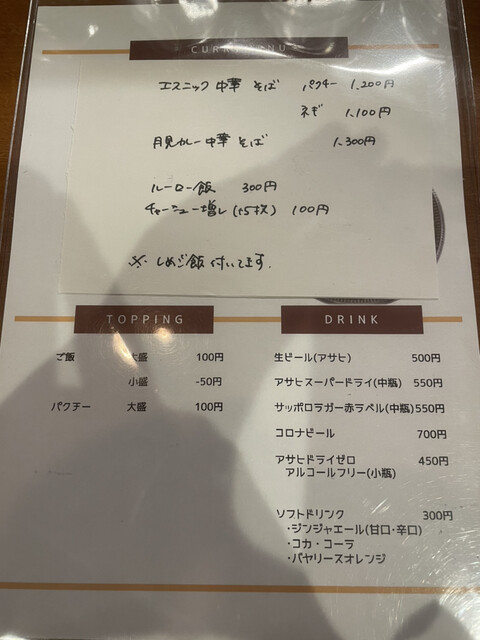 CURRY MENU
エスニック 中華 そば パクチー 1,200円
ネギ 1,100円
月見カレー中華 そば 1,300円
ルーロー飯 300円
チャーシュー増し(+5枚) 100円
※ しめご飯 付いてます.
TOPPING
ご飯 大盛 100円
小盛 -50円
パクチー 大盛 100円
DRINK
生ビール(アサヒ) 500円
アサヒスーパードライ(中瓶) 550円
サッポロラガー赤ラベル(中瓶)550円
コロナビール 700円
アサヒドライゼロ 450円
アルコールフリー(小瓶)
ソフトドリンク 300円
・ジンジャエール(甘口・辛口)
・コカ・コーラ
・バヤリースオレンジ